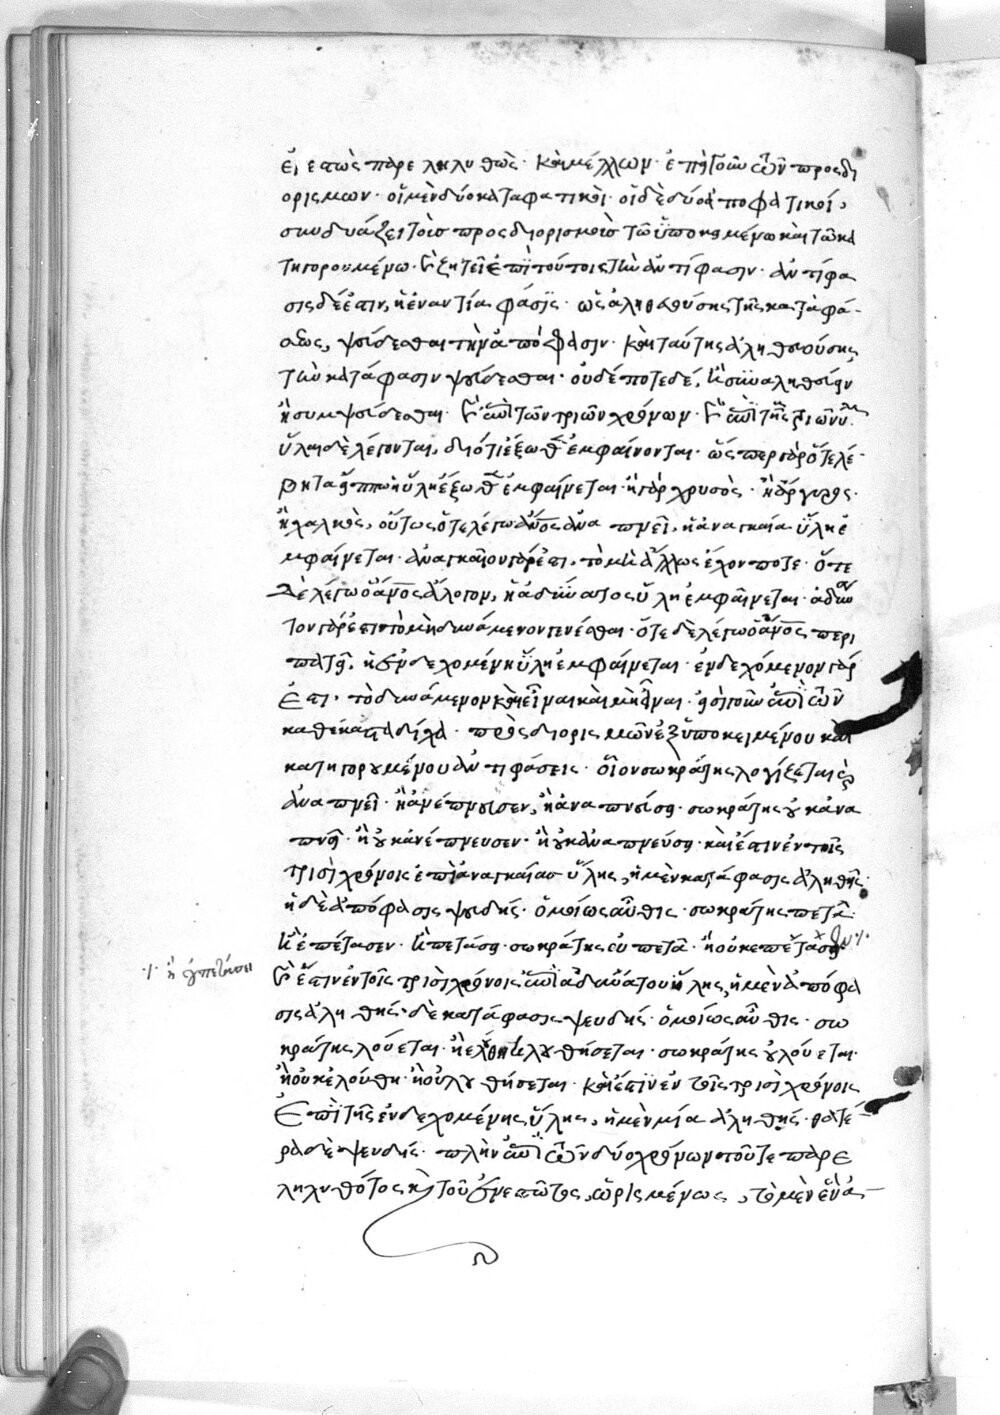 ἐνεστὼς παρεληλυθὼς· καὶ μέλλων· ἐπεὶ τοίνυν τῶν προσδι
ορισμων· οἱ μὲν δύο καταφατικοὶ· οἱ δὲ δύο ἀποφατικοί,
συνδυάζει τοῖς προσδιορισμοῖς τῶ ὑποκειμένω καὶ τῶ κα
τηγορουμένω· καὶ ζητεῖ ἐπὶ τούτοις τὴν ἀντίφασιν· ἀντίφα
σις δέ ἐστιν, ἡ ἐναντία φάσις· ὡς ἀληθευούσης τῆς καταφά-
σεως, ψεύδεσθαι τὴν ἀπόφασιν· καὶ ταύτης ἀληθευούσης
τὴν κατάφασιν ψεύδεσθαι· οὐδέποτε δέ, ἢ συναληθεύειν
ἢ συμψεύδεσθαι· καὶ ἐπὶ τῶν τριῶν χρόνων· καὶ ἐπὶ τῆς τριῶν ὑλῶν·
ὕλαι δὲ λέγονται, διότι ἔξωθεν ἐμφαίνονται· ὥσπερ γὰρ ὅτε λέ-
ἢ χαλκὸς, οὕτως ὅτε λέγω ἄνος ἀναπνεῖ, ἡ ἀναγκαία ὕλη ἐ
μφαίνεται· ἀναγκαῖον γάρ ἐστι, τὸ μὴ ἄλλως ἔχον ποτε· ὅτε
δὲ λέγω ὁ ἄνος ἄλογον, ἡ ἀδύνατος ὕλη ἐμφαίνεται· ἀδύνα
τον γάρ ἐστι τὸ μὴ δυνάμενον γενέσθαι· ὅτε δὲ λέγω ὁ ἄνος περι
πατεῖ, ἡ ἐνδεχομένη ὕλη ἐμφαίνεται· ἐνδεχόμενον γάρ
ἐστι, τὸ δυνάμενον καὶ εἶναι καὶ μὴ εἶναι· εἰσὶ τοίνυν ἐπὶ τῶν
καθέκαστα δίχα· προσδιορισμῶν ἐξ ὑποκειμένου καὶ
κατηγορουμένου ἀντιφάσεις· οἷον σωκράτης λογίζεται
ἀναπνεῖ· ἢ ἀνέπνευσεν, ἢ ἀναπνεύσει· σωκράτης οὐκ ἀνα
πνεῖ· ἢ οὐκ ἀνέπνευσεν· ἢ οὐκ ἀναπνεύσει· καὶ ἔστιν ἐν τοῖς
τρισὶ χρόνοις ἐπὶ ἀναγκαίας ὕλης, ἡ μὲν κατάφασις ἀληθὴς·
ἡ δὲ ἀπόφασις ψευδής· ὁμοίως αὖθις· σωκράτης πετᾶ·
ἢ ἐπέτασεν· ἢ πετάσει· σωκράτης οὐ πετᾶ· ἢ οὐκ ἐπέτασεν·
·/· ἢ οὐ πετάσει
καὶ ἔστιν ἐν τοῖς τρισὶ χρόνοις ἐπὶ ἀδυνάτου ὕλης, ἡ μὲν ἀπόφα
σις ἀληθής· δὲ κατάφασις ψευδής· ὁμοίως αὖθις· σω
κράτης λούεται· ἢ ἐλούθη ἢ λουθήσεται· σωκράτης οὐ λούεται·
ἢ οὐκ ἐλούθη· ἢ οὐ λουθήσεται· καὶ ἔστιν ἐν τοῖς τρισὶ χρόνοις
ἐπὶ τῆς ἐνδεχομένης ὕλης, ἡ μὲν μία ἀληθής· θατέ-
ρα δὲ ψευδής· πλὴν ἐπὶ τῶν δύο χρόνων τοῦτε παρε
ληλυθότος καὶ τοῦ ἐνεστῶτος, ὡρισμένως, τὸ μὲν ἕν ἀ-